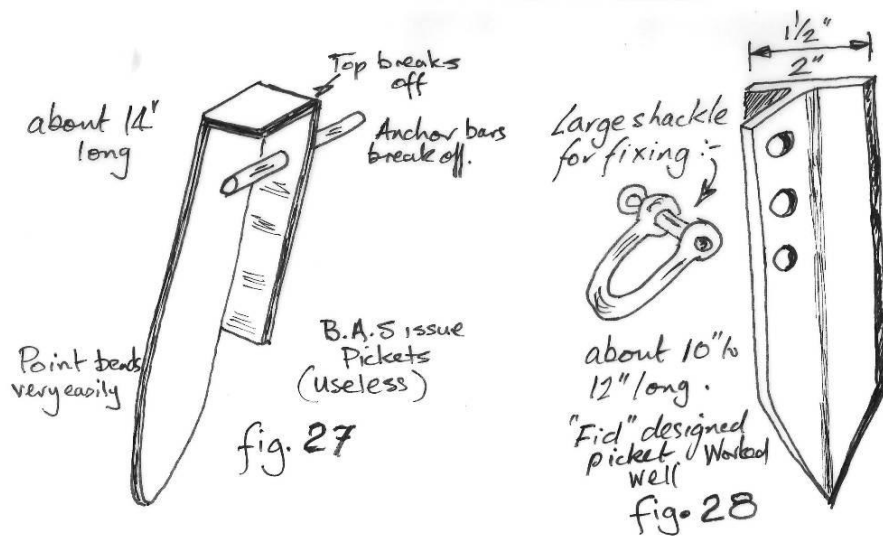 about 14"
long
Top breaks
off
Anchor bars
break off.
Point bends
very easily
B.A.S issue
Pickets
(useless)
fig. 27
1½"
2"
Large shackle
for fixing :-
about 10" to
12" long.
"Fid" designed
picket. Worked
well
fig. 28